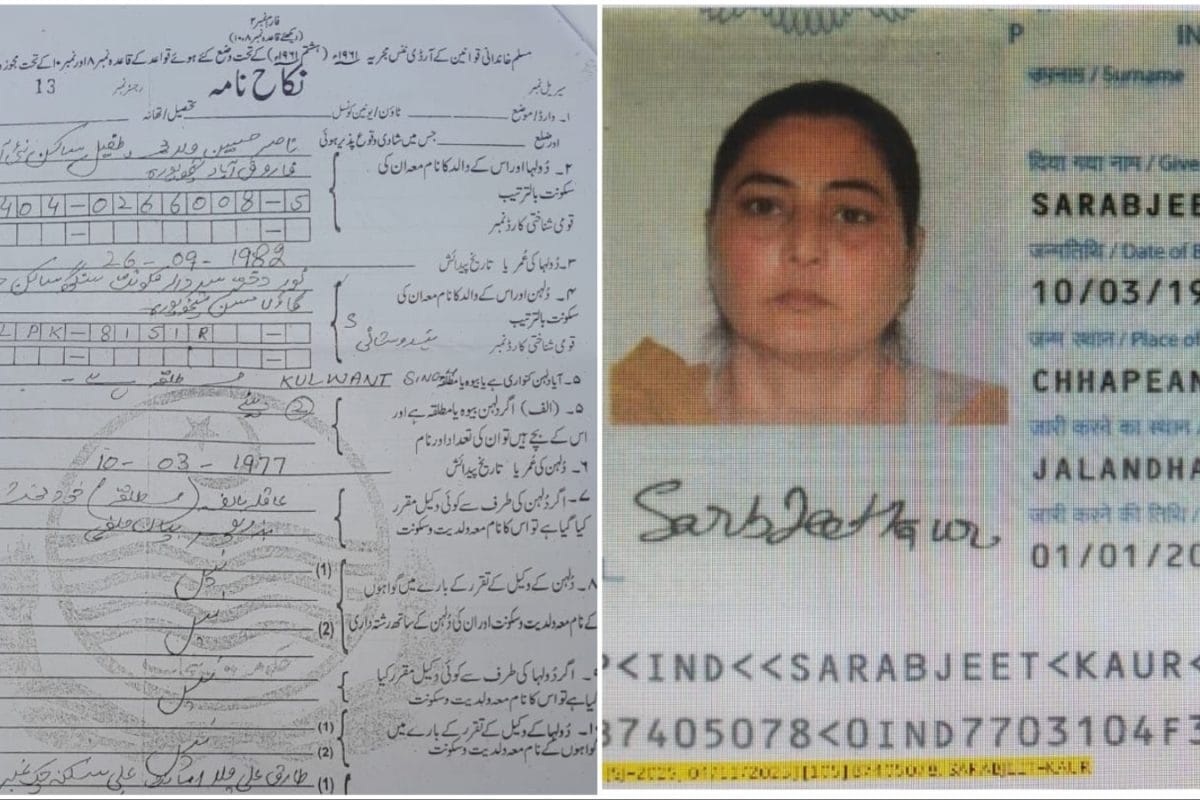 فارم نمبر ۲
(دیکھئے قاعدہ نمبر ۸، ۱۰)
مسلم خاندانی قوانین کے آرڈی ننس مجریہ ۱۹۶۱ء (ہشتم ۱۹۶۱ء) کے تحت وضع کئے ہوئے قواعد کے قاعدہ نمبر ۸ اور نمبر ۱۰ کے تحت مجوزہ
نکاح نامہ
سیریل نمبر
رجسٹر نمبر 13
۱۔ وارڈ/موضع ٹاؤن/یونین کونسل تحصیل/تھانہ
اور ضلع جس میں شادی وقوع پذیر ہوئی
ناصر حسین ولد
۲۔ دُولہا اور اس کے والد کا نام معہ ان کی
فاروق آباد شیخوپورہ
سکونت بالترتیب
404-0266008-5
قومی شناختی کارڈ نمبر
۳۔ دُولہا کی عمر یا تاریخ پیدائش 26-09-1982
۴۔ دُلہن اور اس کے والد کا نام معہ ان کی
سکونت بالترتیب
قومی شناختی کارڈ نمبر
LPK-8151R
ہندوستانی
۵۔ آیا دلہن کنواری ہے یا بیوہ یا مطلقہ KULWANT SINGH مطلقہ ہے
۵۔ (الف) اگر دلہن بیوہ یا مطلقہ ہے اور
اس کے بچے ہیں تو ان کی تعداد اور نام
۶۔ دُلہن کی عمر یا تاریخ پیدائش 10-03-1977
۷۔ اگر دُلہن کی طرف سے کوئی وکیل مقرر
کیا گیا ہے تو اس کا نام معہ ولدیت و سکونت
عاقلہ بالغہ (مطلقہ)
۸۔ دُلہن کے وکیل کے تقرر کے بارے میں گواہوں
کے نام معہ ولدیت و سکونت اور ان کی دُلہن کے ساتھ رشتہ داری
(1)
(2)
۹۔ اگر دُولہا کی طرف سے کوئی وکیل مقرر کیا
گیا ہے تو اس کا نام معہ ولدیت و سکونت
۱۰۔ دُولہا کے وکیل کے تقرر کے بارے میں
گواہوں کے نام معہ ولدیت و سکونت
(1)
(2)
(1) طارق علی ولد
P IN
उपनाम / Surname
दिया गया नाम / Give
SARABJEE
जन्मतिथि / Date of B
10/03/19
जन्म स्थान / Place of
CHHAPEAN
जारी करने का स्थान
JALANDHA
जारी करने की तिथि
01/01/20
Sarabjeet Kaur
P<IND<<SARABJEET<KAUR<
87405078<0IND7703104F3
SARABJEET-KAUR